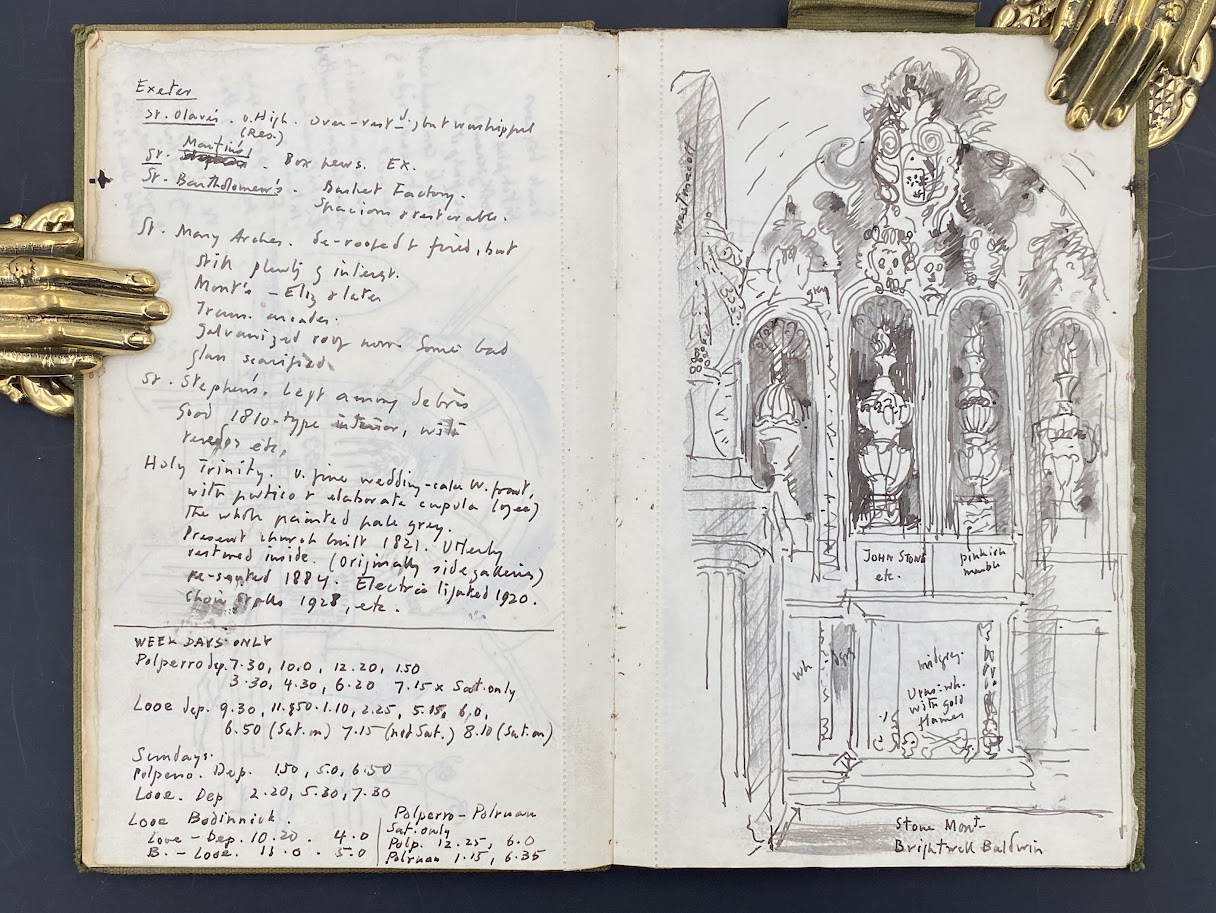 Exeter
St. Olave's. v. High. Over-rest d, but worshipful
(Res.)
Martin's
St. Stephen's. Box pews. Ex.
St. Bartholomew's. Basket Factory.
Spacious & restorable.
St. Mary Arches. De-roofed & fired, but
still plenty of interest.
Mont's - Eliz & later
Trans. arcades.
Galvanized roof now. Some bad
glass scarified.
St. Stephen's. Left among debris
Good 1810-type interior, with
reredos etc,
Holy Trinity. v. fine wedding-cake W. front,
with portico & elaborate cupola (ogee)
The whole painted pale grey.
Present church built 1821. Utterly
restored inside. (Originally side galleries)
re-seated 1884. Electric lighted 1920.
Choir stalls 1928, etc.
WEEK DAYS ONLY
Polperro dep. 7.30, 10.0, 12.20, 1.50
3.30, 4.30, 6.20 7.15 x Sat. only
Looe dep. 9.30, 1.10, 2.25, 5.15, 6.0,
6.50 (Sat. on) 7.15 (not Sat.) 8.10 (Sat. on)
Sundays.
Polperro. Dep. 1.50, 5.0, 6.50
Looe. Dep 2.20, 5.30, 7.30
Looe Bodinnick.
Looe - Dep. 10.20. 4.0
B. - Looe. 11.0. 5.0
Polperro - Polruan
Sat. only
Polp. 12.25, 6.0
Polruan 1.15, 6.35
Westmacott
grey
JOHN STONE
etc.
pinkish
marble
wh
midgrey.
Urns-wh.
with gold
flames
Stone Mont-
Brightwell Baldwin